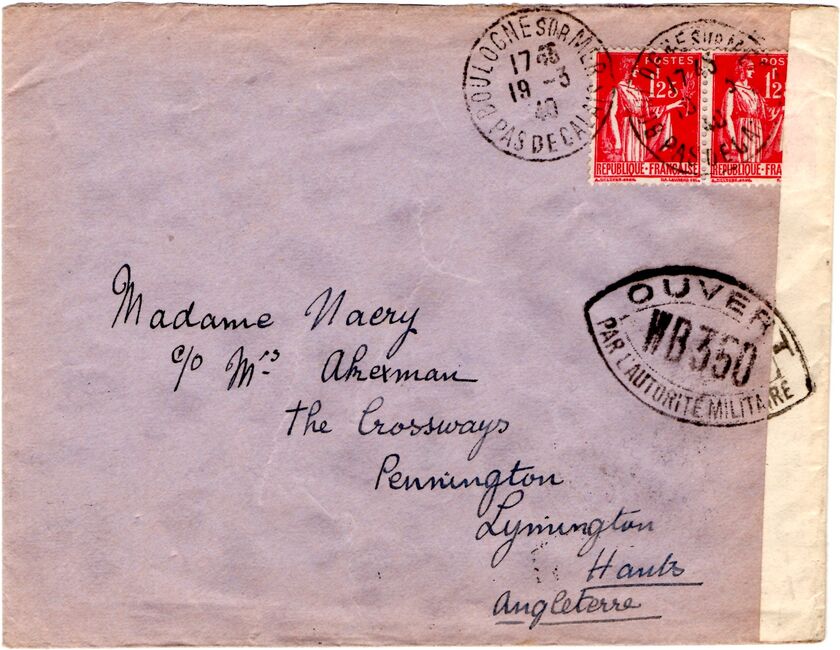 BOULOGNE SUR MER
17 45
19 -3
40
PAS DE CALAIS
POSTES
1F25
REPUBLIQUE-FRANÇAISE
POS
REPUBLIQUE-FRAN
OUVERT
WB350
PAR L'AUTORITÉ MILITAIRE
Madame Naery
c/o Mrs Akerman
The Crossways
Pennington
Lymington
Hants
Angleterre